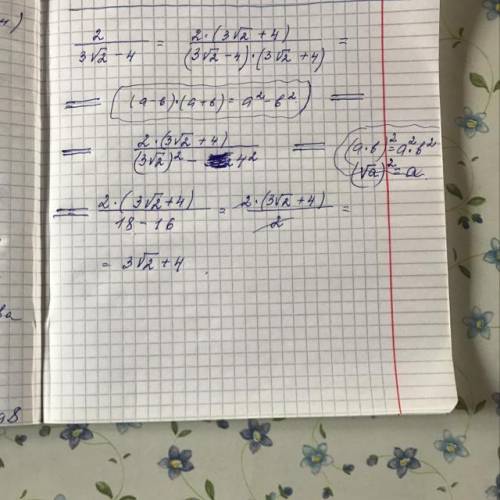 2 / (3√2 - 4) = 2·(3√2 + 4) / ((3√2 - 4)·(3√2 + 4)) =
= (a-b)·(a+b) = a² - b² =
= 2·(3√2 + 4) / ((3√2)² - 4²) = (a·b)² = a²·b²
(√a)² = a
= 2·(3√2 + 4) / (18 - 16) = 2·(3√2 + 4) / 2 =
= 3√2 + 4